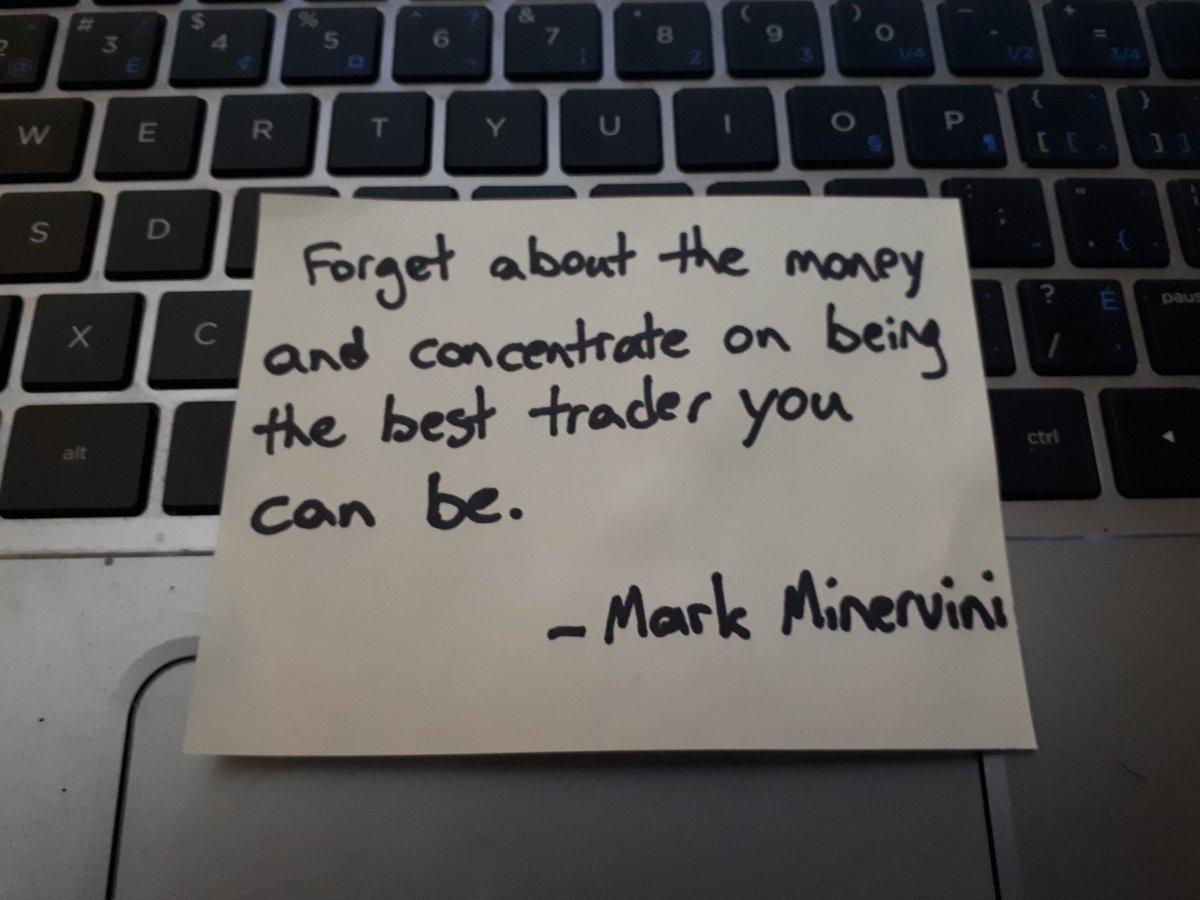 # 3 £
$ 4 ¢
% 5
^ 6 ?
& 7 ¦
* 8 2
( 9 3
) 0 1/4
_ - 1/2
+ = 3/4
W E R T Y U I O § P ¶ { [ [ ^ } ] ]
S D : ; " ' {
X C ? / É pau
alt ctrl
Forget about the money
and concentrate on being
the best trader you
can be.
- Mark Minervini